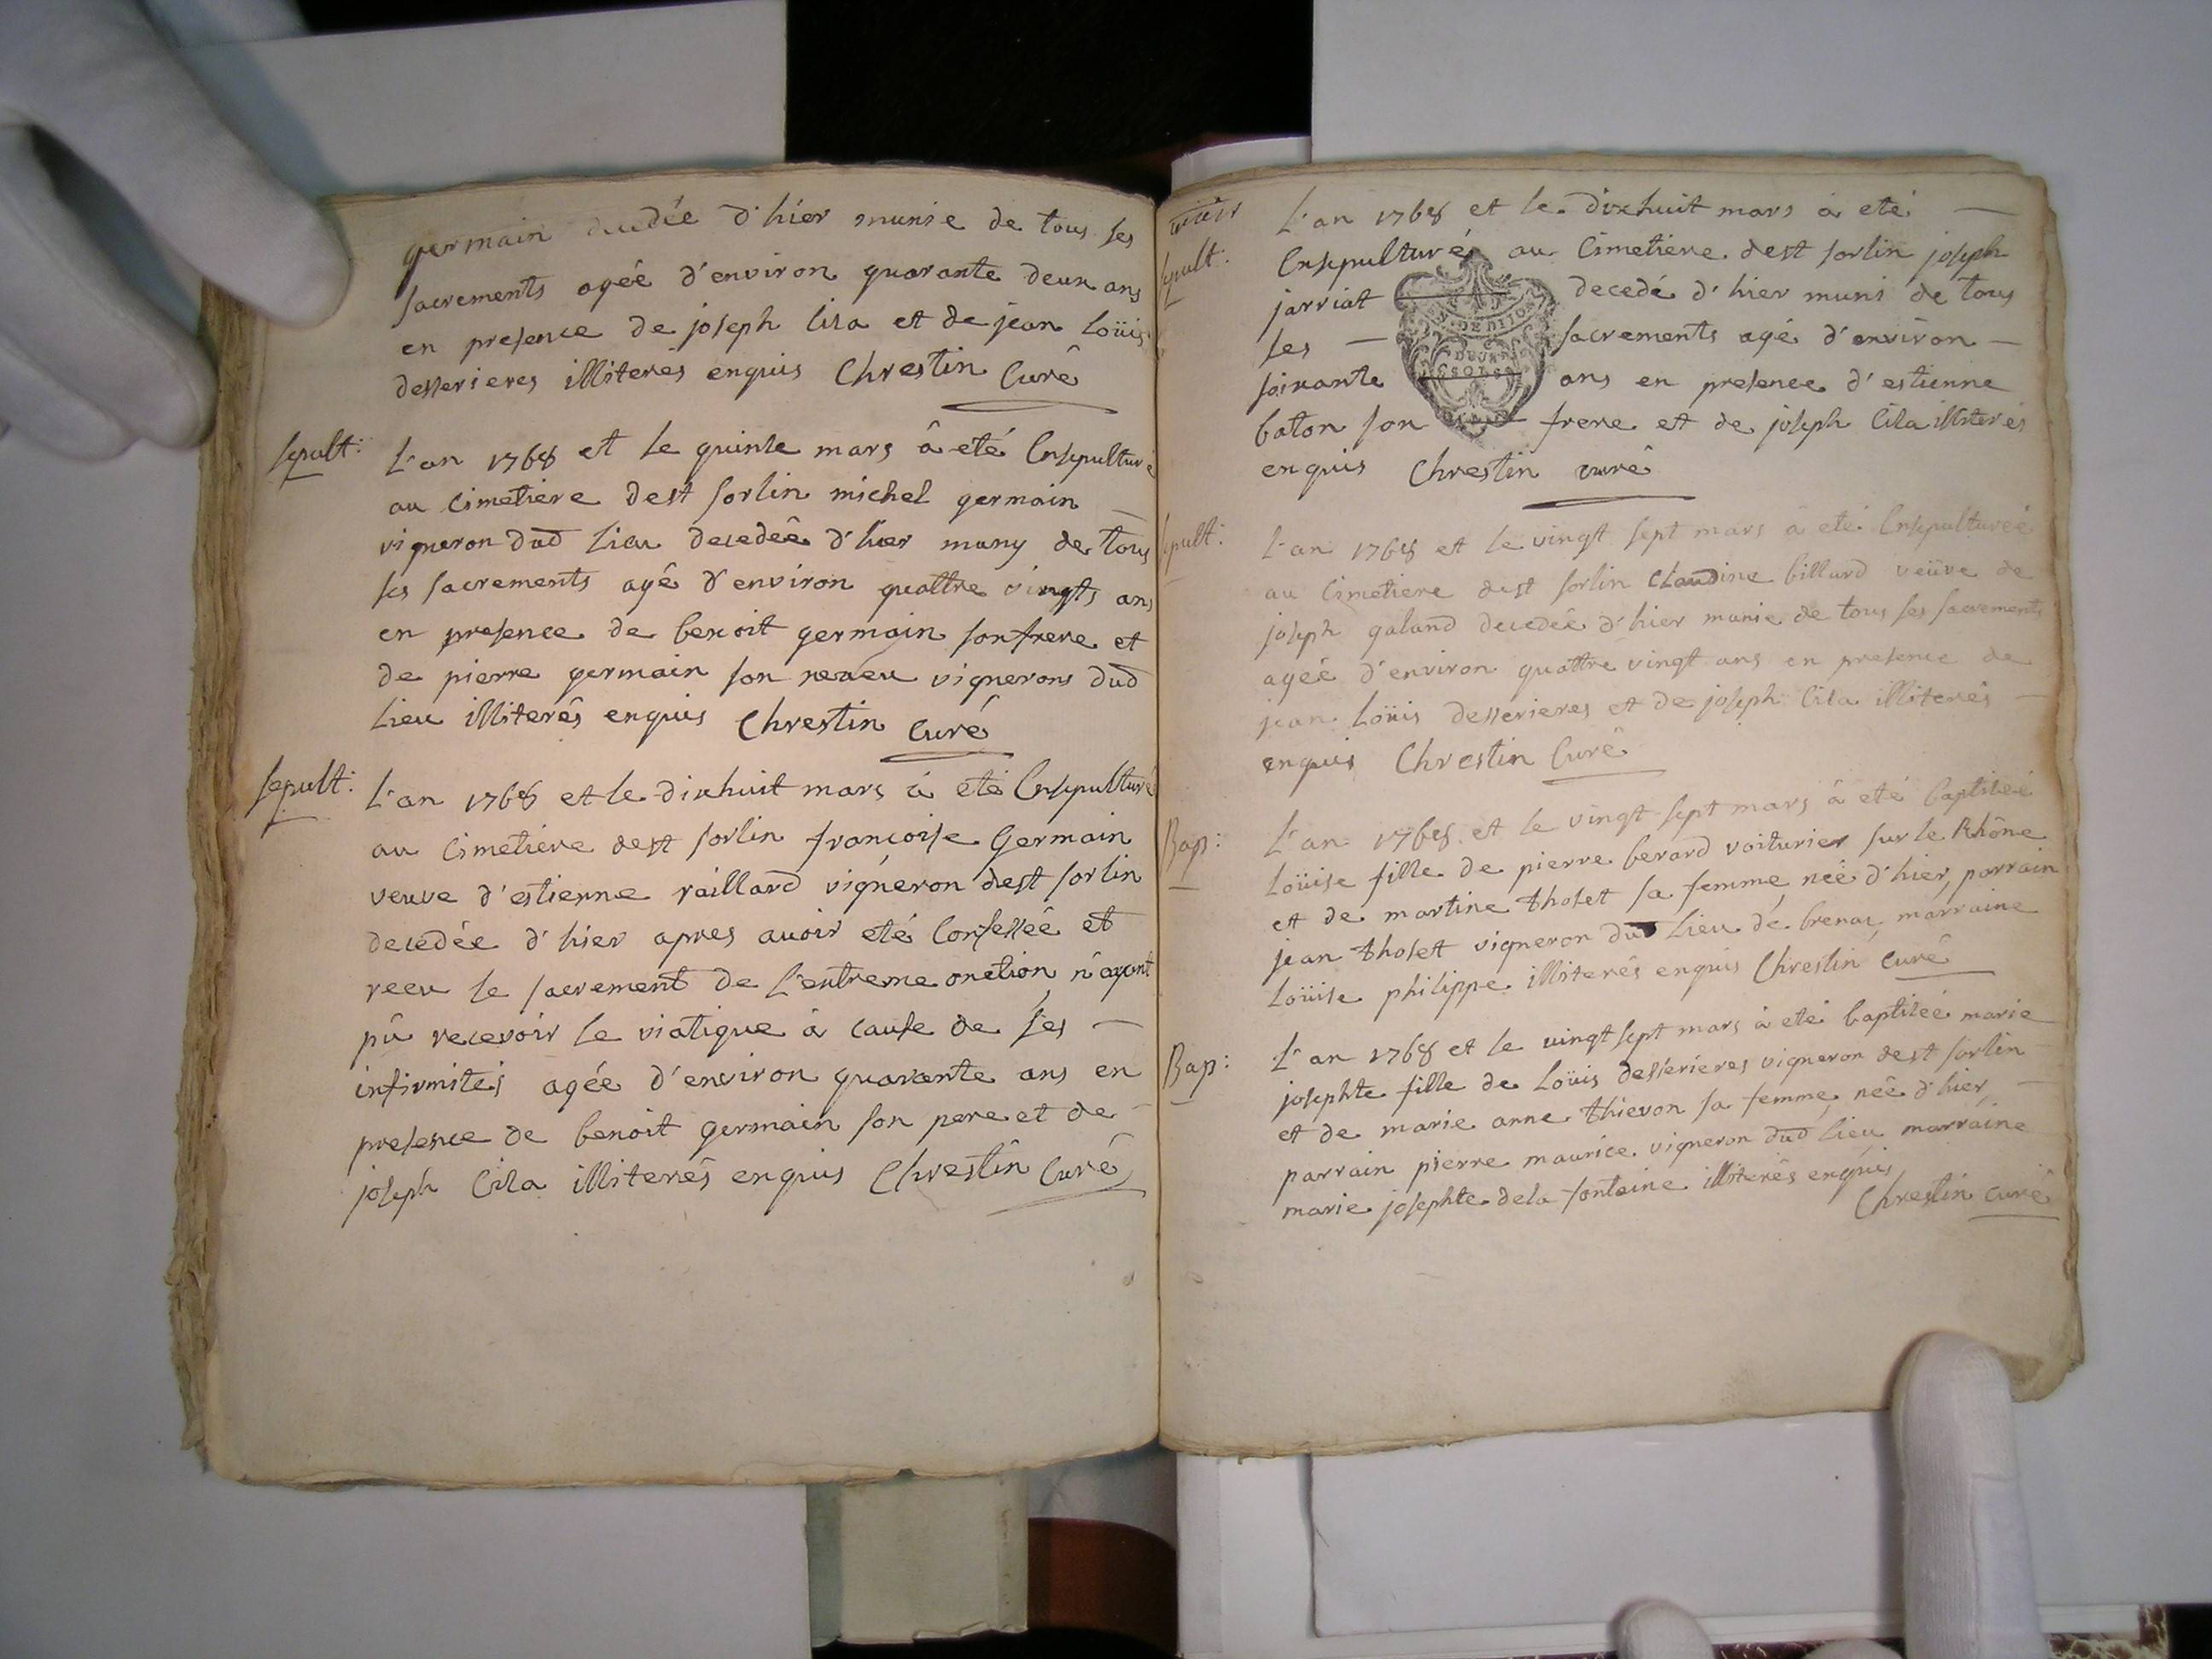 germain decedée d'hier munie de tous ses
sacrements agée d'environ quarante deux ans
en presence de joseph Cisa et de jean Loüis
desserieres illiterés enquis Chrestin Curé
sepult: L'an 1768 et le quinse mars à eté Ensepulturé
au Cimetiere dest sorlin michel germain
vigneron dud Lieu decedée d'hier muny de tous
ses sacrements agé d'environ quattre vingts ans
en presence de benoit germain son frere et
de pierre germain son neveu vignerons dud
Lieu illiterés enquis Chrestin Curé
sepult: L'an 1768 et le dixhuit mars à eté Ensepulturé
au Cimetiere dest sorlin francoise Germain
veuve d'estienne raillard vigneron dest sorlin
decedée d'hier apres avoir eté Confessée et
receu le sacrement de l'extreme onction n'ayant
pû recevoir le viatique à cause de ses
infirmités agée d'environ quarante ans en
presence de benoit germain son pere et de
joseph Cisa illiterés enquis Chrestin Curé
L'an 1768 et le dixhuit mars à eté
sepult: Ensepulturé au Cimetiere dest sorlin joseph
jarriat decedé d'hier muni de tous
ses sacrements agé d'environ
soixante ans en presence d'estienne
baton son frere et de joseph Cisa illiterés
enquis Chrestin curé
DE DIJON
sepult: L'an 1768 et le vingt sept mars à eté Ensepulturée
au Cimetiere dest sorlin Claudine billard veüve de
joseph galand decedée d'hier munie de tous ses sacrements
agée d'environ quattre vingt ans en presence de
jean Loüis desserieres et de joseph Cisa illiterés
enquis Chrestin Curé
Bap: L'an 1768 et le vingt sept mars à eté baptisée
Loüise fille de pierre berard voiturier sur le Rhône
et de martine tholet sa femme, née d'hier, parrain
jean tholet vigneron dud Lieu de brenaz, marraine
Loüise philippe illiterés enquis Chrestin Curé
Bap: L'an 1768 et le vingt sept mars à eté baptisée marie
josephte fille de Loüis desserieres vigneron dest sorlin
et de marie anne thievon sa femme, née d'hier,
parrain pierre maurice vigneron dud lieu marraine
marie josephte dela fontaine illiterés enquis
Chrestin curé